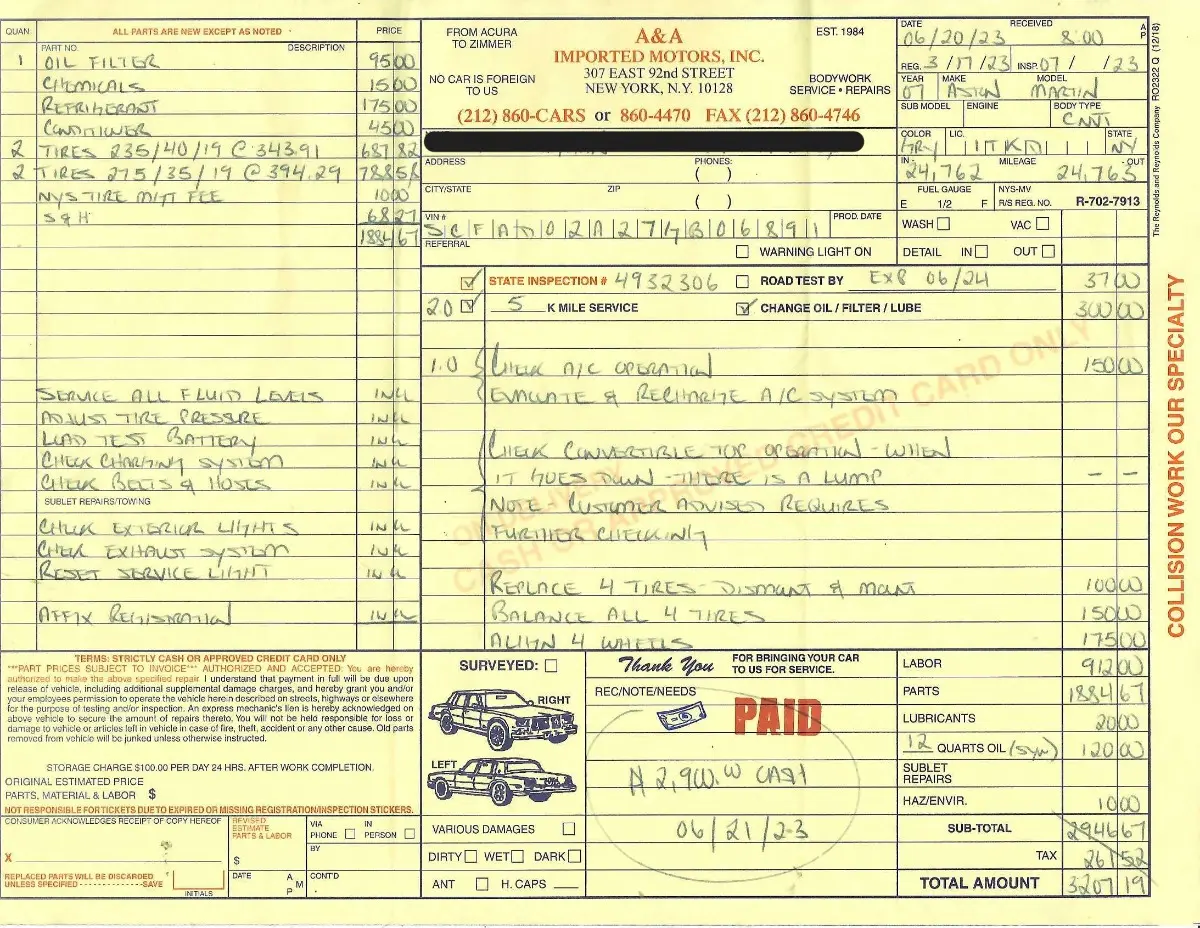 QUAN. ALL PARTS ARE NEW EXCEPT AS NOTED PRICE
PART NO. DESCRIPTION
1 OIL FILTER 95 00
CHEMICALS 15 00
REFRIGERANT 175 00
CONDITIONER 45 00
2 TIRES 235/40/19 @ 343.91 687 82
2 TIRES 275/35/19 @ 394.29 788 58
NYS TIRE MGT FEE 10 00
S & H 68 27
1884 67
SERVICE ALL FLUID LEVELS INCL
ADJUST TIRE PRESSURE INCL
LOAD TEST BATTERY INCL
CHECK CHARGING SYSTEM INCL
CHECK BELTS & HOSES INCL
SUBLET REPAIRS/TOWING
CHECK EXTERIOR LIGHTS INCL
CHECK EXHAUST SYSTEM INCL
RESET SERVICE LIGHT INCL
AFFIX REGISTRATION INCL
FROM ACURA TO ZIMMER
A&A
IMPORTED MOTORS, INC.
EST. 1984
307 EAST 92nd STREET
NEW YORK, N.Y. 10128
NO CAR IS FOREIGN TO US
BODYWORK
SERVICE • REPAIRS
(212) 860-CARS or 860-4470 FAX (212) 860-4746
ADDRESS PHONES:
( )
CITY/STATE ZIP
( )
VIN # SCFAD02A27GB06891 PROD. DATE
REFERRAL
WARNING LIGHT ON
DATE 06/20/23 RECEIVED 8:00 A P
REG. 3/17/23 INSP. 07/ /23
YEAR 07 MAKE ASTON MODEL MARTIN
SUB MODEL ENGINE BODY TYPE CNVT
COLOR GRY LIC. STATE NY
IN- 24,762 MILEAGE 24,763 -OUT
FUEL GAUGE NYS-MV
E 1/2 F R/S REG. NO. R-702-7913
WASH VAC
DETAIL IN OUT
The Reynolds and Reynolds Company RO2322 Q (12/18)
STATE INSPECTION # 4932306 ROAD TEST BY EXP 06/24 37 00
2.0 5 K MILE SERVICE CHANGE OIL / FILTER / LUBE 300 00
1.0 CHECK A/C OPERATION 150 00
EVALUATE & RECHARGE A/C SYSTEM
CHECK CONVERTIBLE TOP OPERATION - WHEN
IT GOES DOWN - THERE IS A LUMP - -
NOTE CUSTOMER ADVISED REQUIRES
FURTHER CHECKING
REPLACE 4 TIRES - DISMOUNT & MOUNT 100 00
BALANCE ALL 4 TIRES 150 00
ALIGN 4 WHEELS 175 00
ON DELIVERY
CASH OR APPROVED CREDIT CARD ONLY
COLLISION WORK OUR SPECIALTY
TERMS: STRICTLY CASH OR APPROVED CREDIT CARD ONLY
***PART PRICES SUBJECT TO INVOICE*** AUTHORIZED AND ACCEPTED: You are hereby
authorized to make the above specified repair. I understand that payment in full will be due upon
release of vehicle, including additional supplemental damage charges, and hereby grant you and/or
your employees permission to operate the vehicle herein described on streets, highways or elsewhere
for the purpose of testing and/or inspection. An express mechanic's lien is hereby acknowledged on
above vehicle to secure the amount of repairs thereto. You will not be held responsible for loss or
damage to vehicle or articles left in vehicle in case of fire, theft, accident or any other cause. Old parts
removed from vehicle will be junked unless otherwise instructed.
STORAGE CHARGE $100.00 PER DAY 24 HRS. AFTER WORK COMPLETION.
ORIGINAL ESTIMATED PRICE
PARTS, MATERIAL & LABOR $
NOT RESPONSIBLE FOR TICKETS DUE TO EXPIRED OR MISSING REGISTRATION/INSPECTION STICKERS.
CONSUMER ACKNOWLEDGES RECEIPT OF COPY HEREOF
X
REPLACED PARTS WILL BE DISCARDED
UNLESS SPECIFIED - - - - - - - - - - - - - - -SAVE
INITIALS
REVISED
ESTIMATE
PARTS & LABOR
$
DATE A M P
VIA PHONE IN PERSON
BY
CONT'D
SURVEYED:
RIGHT
LEFT
VARIOUS DAMAGES
DIRTY WET DARK
ANT H. CAPS
Thank You FOR BRINGING YOUR CAR TO US FOR SERVICE.
REC/NOTE/NEEDS
PAID
2,900.00 CASH
06/21/23
LABOR 912 00
PARTS 1884 67
LUBRICANTS 20 00
12 QUARTS OIL (SYN) 120 00
SUBLET REPAIRS
HAZ/ENVIR. 10 00
SUB-TOTAL 2946 67
TAX 261 52
TOTAL AMOUNT 3207 19